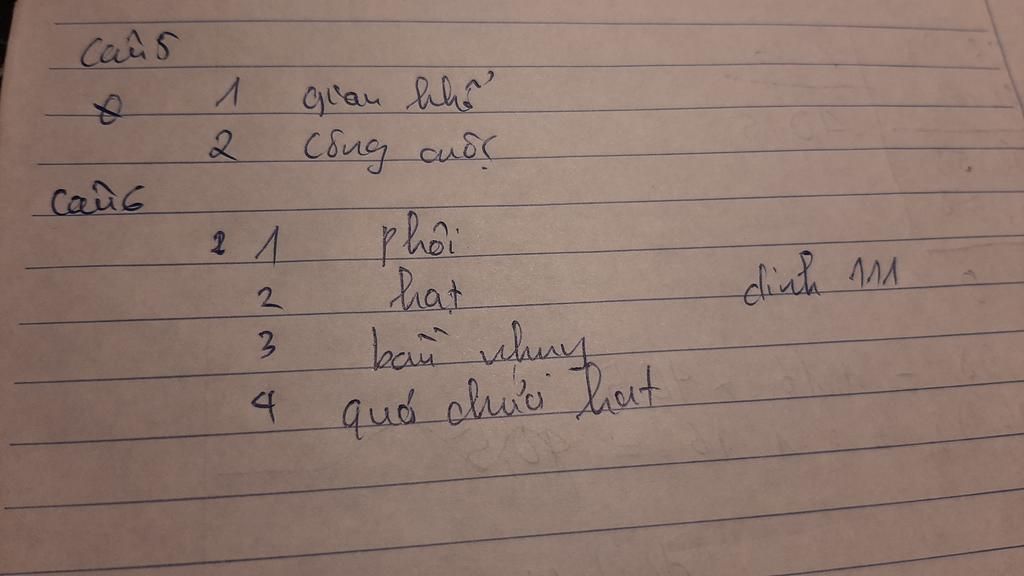 Câu 5
1 gian khổ
2 công cuộc
Câu 6
2 1 phôi
2 hạt
dinh 111
3 bầu nhụy
4 quả chứa hạt